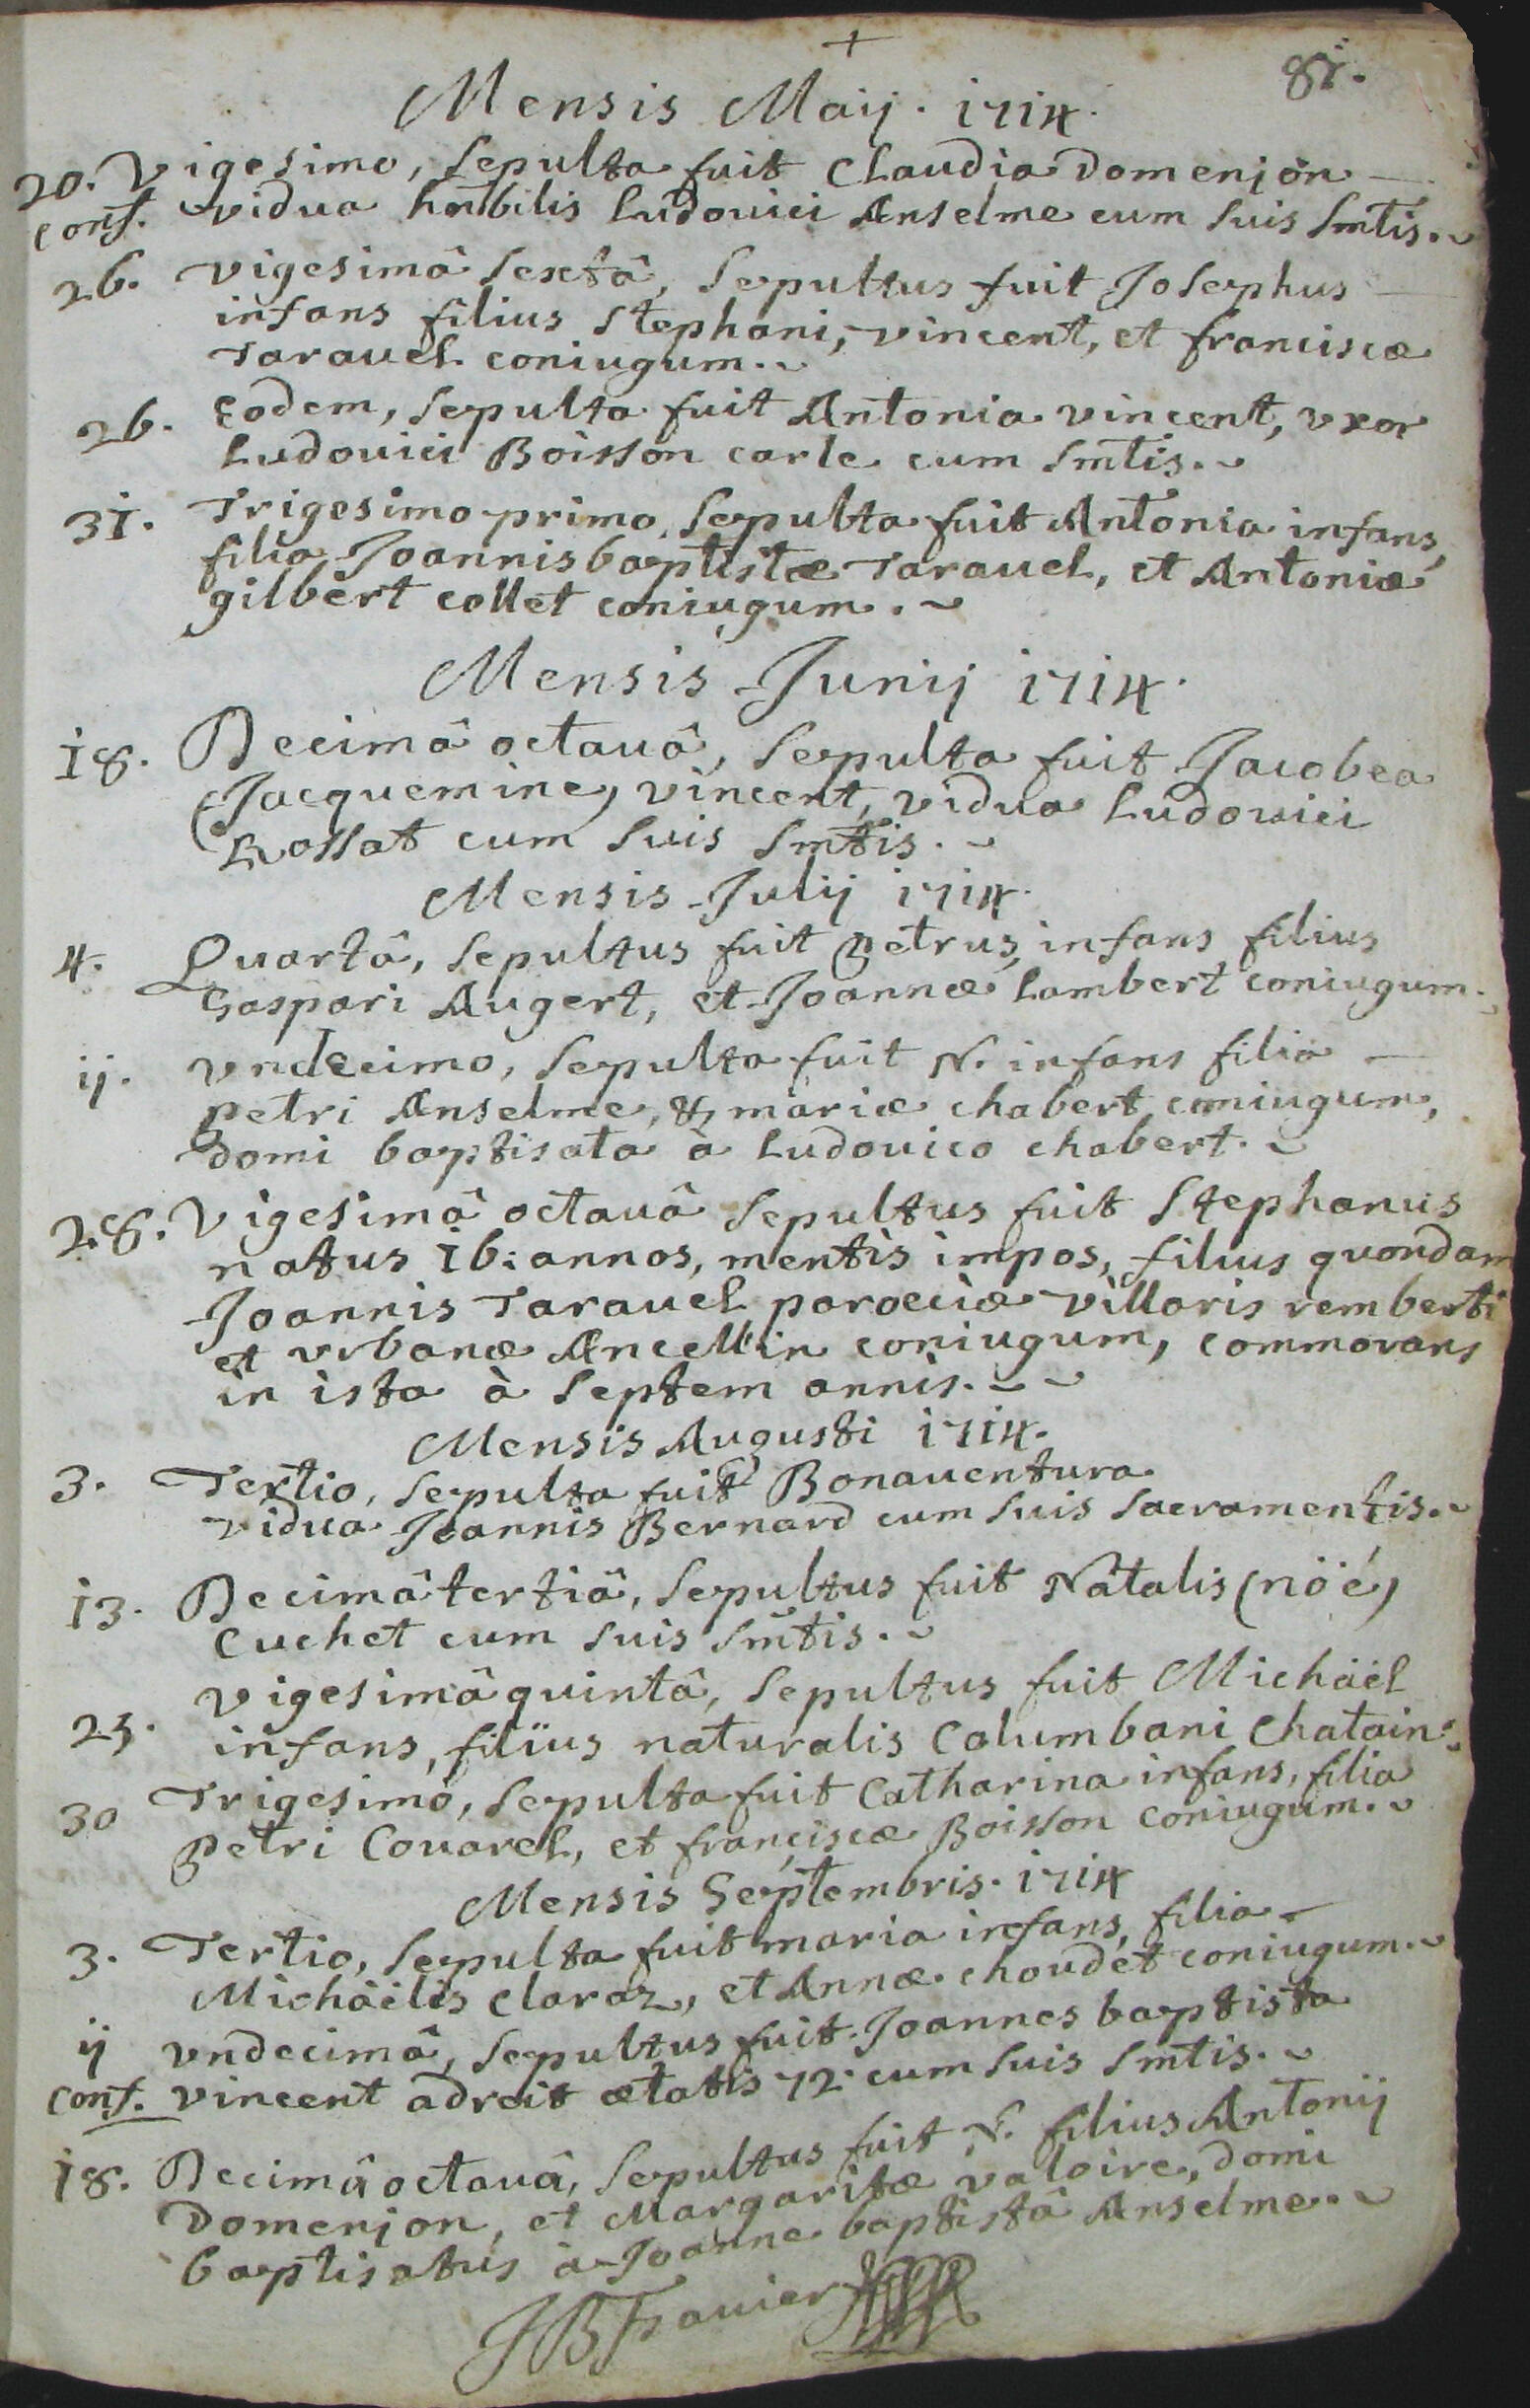 +
81.
Mensis Maij. 1714.
20. Vigesimo, sepulta fuit Claudia Domenjon —
conf. vidua hnbilis Ludovici Anselme cum suis Smtis.
26. vigesimâ sextâ, sepultus fuit Josephus —
infans filius Stephani, vincent, et franciscæ
Taravel coniugum.
26. Eodem, sepulta fuit Antonia vincent, vxor
Ludouici Boisson carle cum Smtis.
31. Trigesimo primo, sepulta fuit Antonia infans,
filia Joannisbaptistæ Tarauel, et Antoniæ
gilbert collet coniugum.
Mensis Junij 1714.
18. Decimâ octauâ, sepulta fuit Jacobea
(Jacquemine) vincent, vidua Ludouici
Rossat cum suis Smtis.
Mensis Julij 1714.
4. Quartâ, sepultus fuit Petrus, infans filius
Gaspari Augert, et Joannæ Lambert coniugum.
ij. vndecimo, sepulta fuit N. infans filia —
petri Anselme, & mariæ chabert coniugum,
domi baptisata à Ludouico chabert.
28. Vigesimâ octauâ sepultus fuit Stephanus
natus 16: annos, mentis impos, filius quondam
Joannis Tarauel paroeciæ Villaris remberti
et vrbanæ Ancellin coniugum, commorans
in ista à septem annis.
Mensis Augusti 1714.
3. Tertio, sepulta fuit Bonauentura
vidua Joannis Bernard cum suis sacramentis.
13. Decimâ tertiâ, sepultus fuit Natalis (nöé)
Cuchet cum suis Smtis.
25. vigesimâ quintâ, sepultus fuit Michäel
infans, filius naturalis Columbani Chatain.
30 Trigesimo, sepulta fuit Catharina infans, filia
Petri Couarel, et franciscæ Boisson coniugum.
Mensis Septembris. 1714
3. Tertio, sepulta fuit maria infans, filia —
Michäelis claraz, et Annæ choudet coniugum.
ij vndecimâ, sepultus fuit Joannes baptista
conf. vincent adroit ætatis 72. cum suis Smtis.
18. Decimâ octauâ, sepultus fuit N. filius Antonij
Domenjon, et Margaritæ valoire, domi
baptisatus à Joanne baptistâ Anselme.
JB